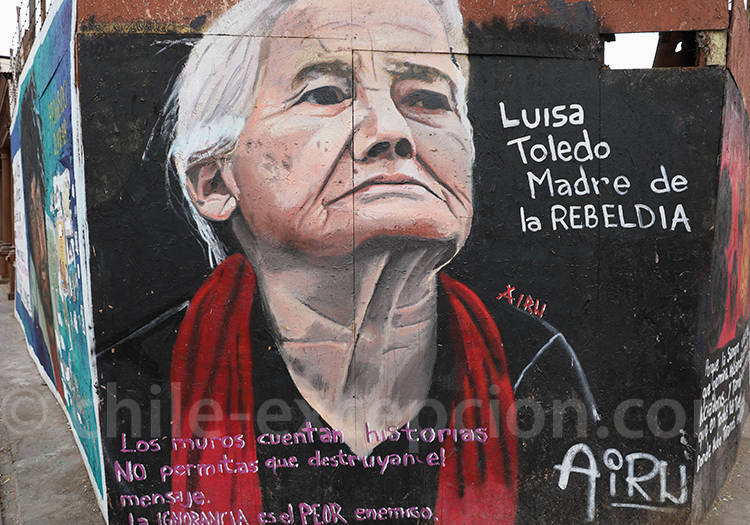 Luisa
Toledo
Madre de
la REBELDIA
AIRU
Los muros cuentan historias
NO permitas que destruyan el
mensaje.
la IGNORANCIA es el PEOR enemigo.
AiRU
© chile-excepcion.com